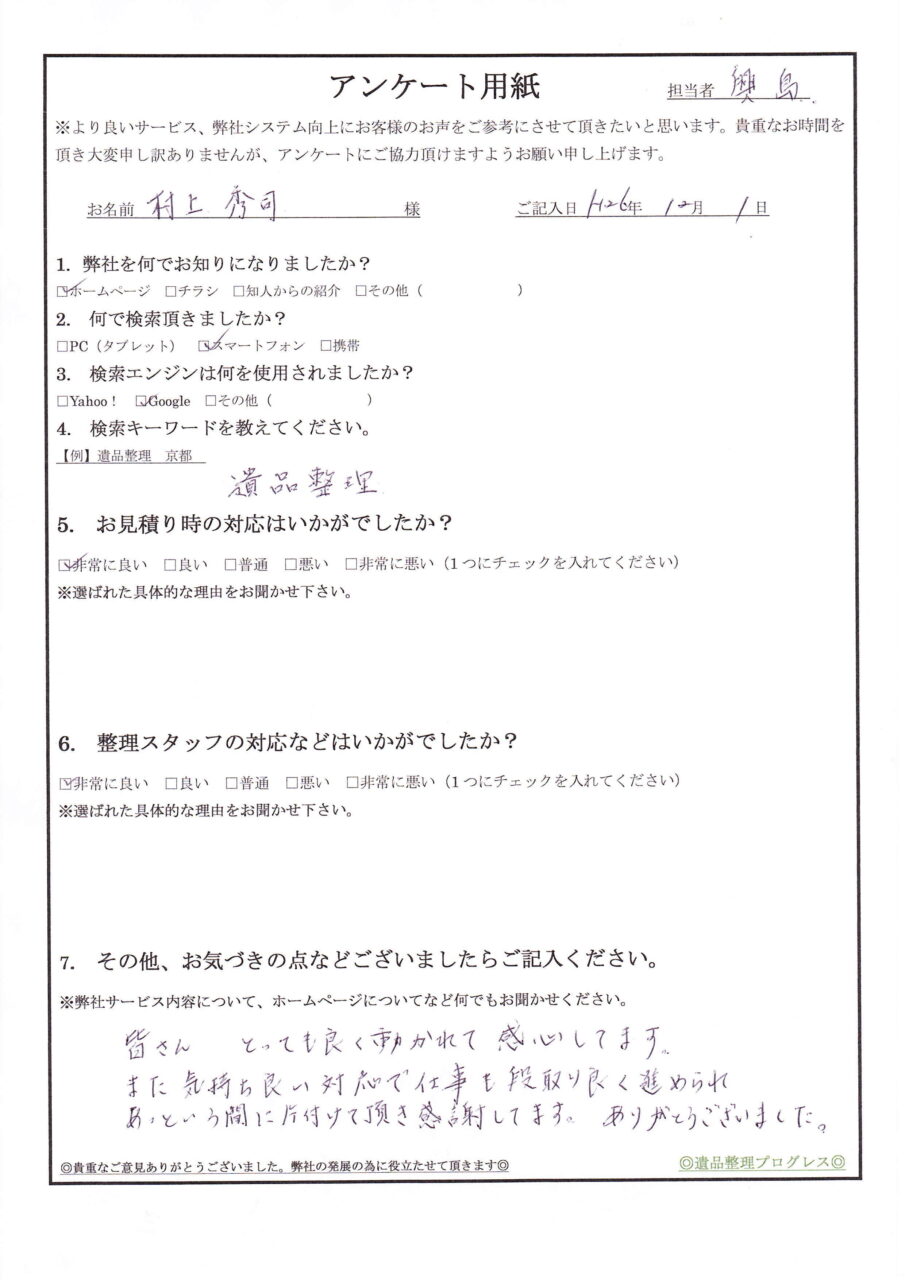 アンケート用紙
担当者 奥島
※より良いサービス、弊社システム向上にお客様のお声をご参考にさせて頂きたいと思います。貴重なお時間を
頂き大変申し訳ありませんが、アンケートにご協力頂けますようお願い申し上げます。
お名前 村上 秀司 様 ご記入日 H26年 12月 1日
1. 弊社を何でお知りになりましたか？
☑ホームページ □チラシ □知人からの紹介 □その他（ ）
2. 何で検索頂きましたか？
□PC（タブレット） ☑スマートフォン □携帯
3. 検索エンジンは何を使用されましたか？
□Yahoo！ ☑Google □その他（ ）
4. 検索キーワードを教えてください。
【例】遺品整理 京都
遺品整理
5. お見積り時の対応はいかがでしたか？
☑非常に良い □良い □普通 □悪い □非常に悪い（1つにチェックを入れてください）
※選ばれた具体的な理由をお聞かせ下さい。
6. 整理スタッフの対応などはいかがでしたか？
☑非常に良い □良い □普通 □悪い □非常に悪い（1つにチェックを入れてください）
※選ばれた具体的な理由をお聞かせ下さい。
7. その他、お気づきの点などございましたらご記入ください。
※弊社サービス内容について、ホームページについてなど何でもお聞かせください。
皆さん とっても良く動かれて 感心してます。
また 気持ち良い対応で仕事も段取り良く進められ
あっという間に片付けて頂き感謝してます。 ありがとうございました。
◎貴重なご意見ありがとうございました。弊社の発展の為に役立たせて頂きます◎
◎遺品整理プログレス◎